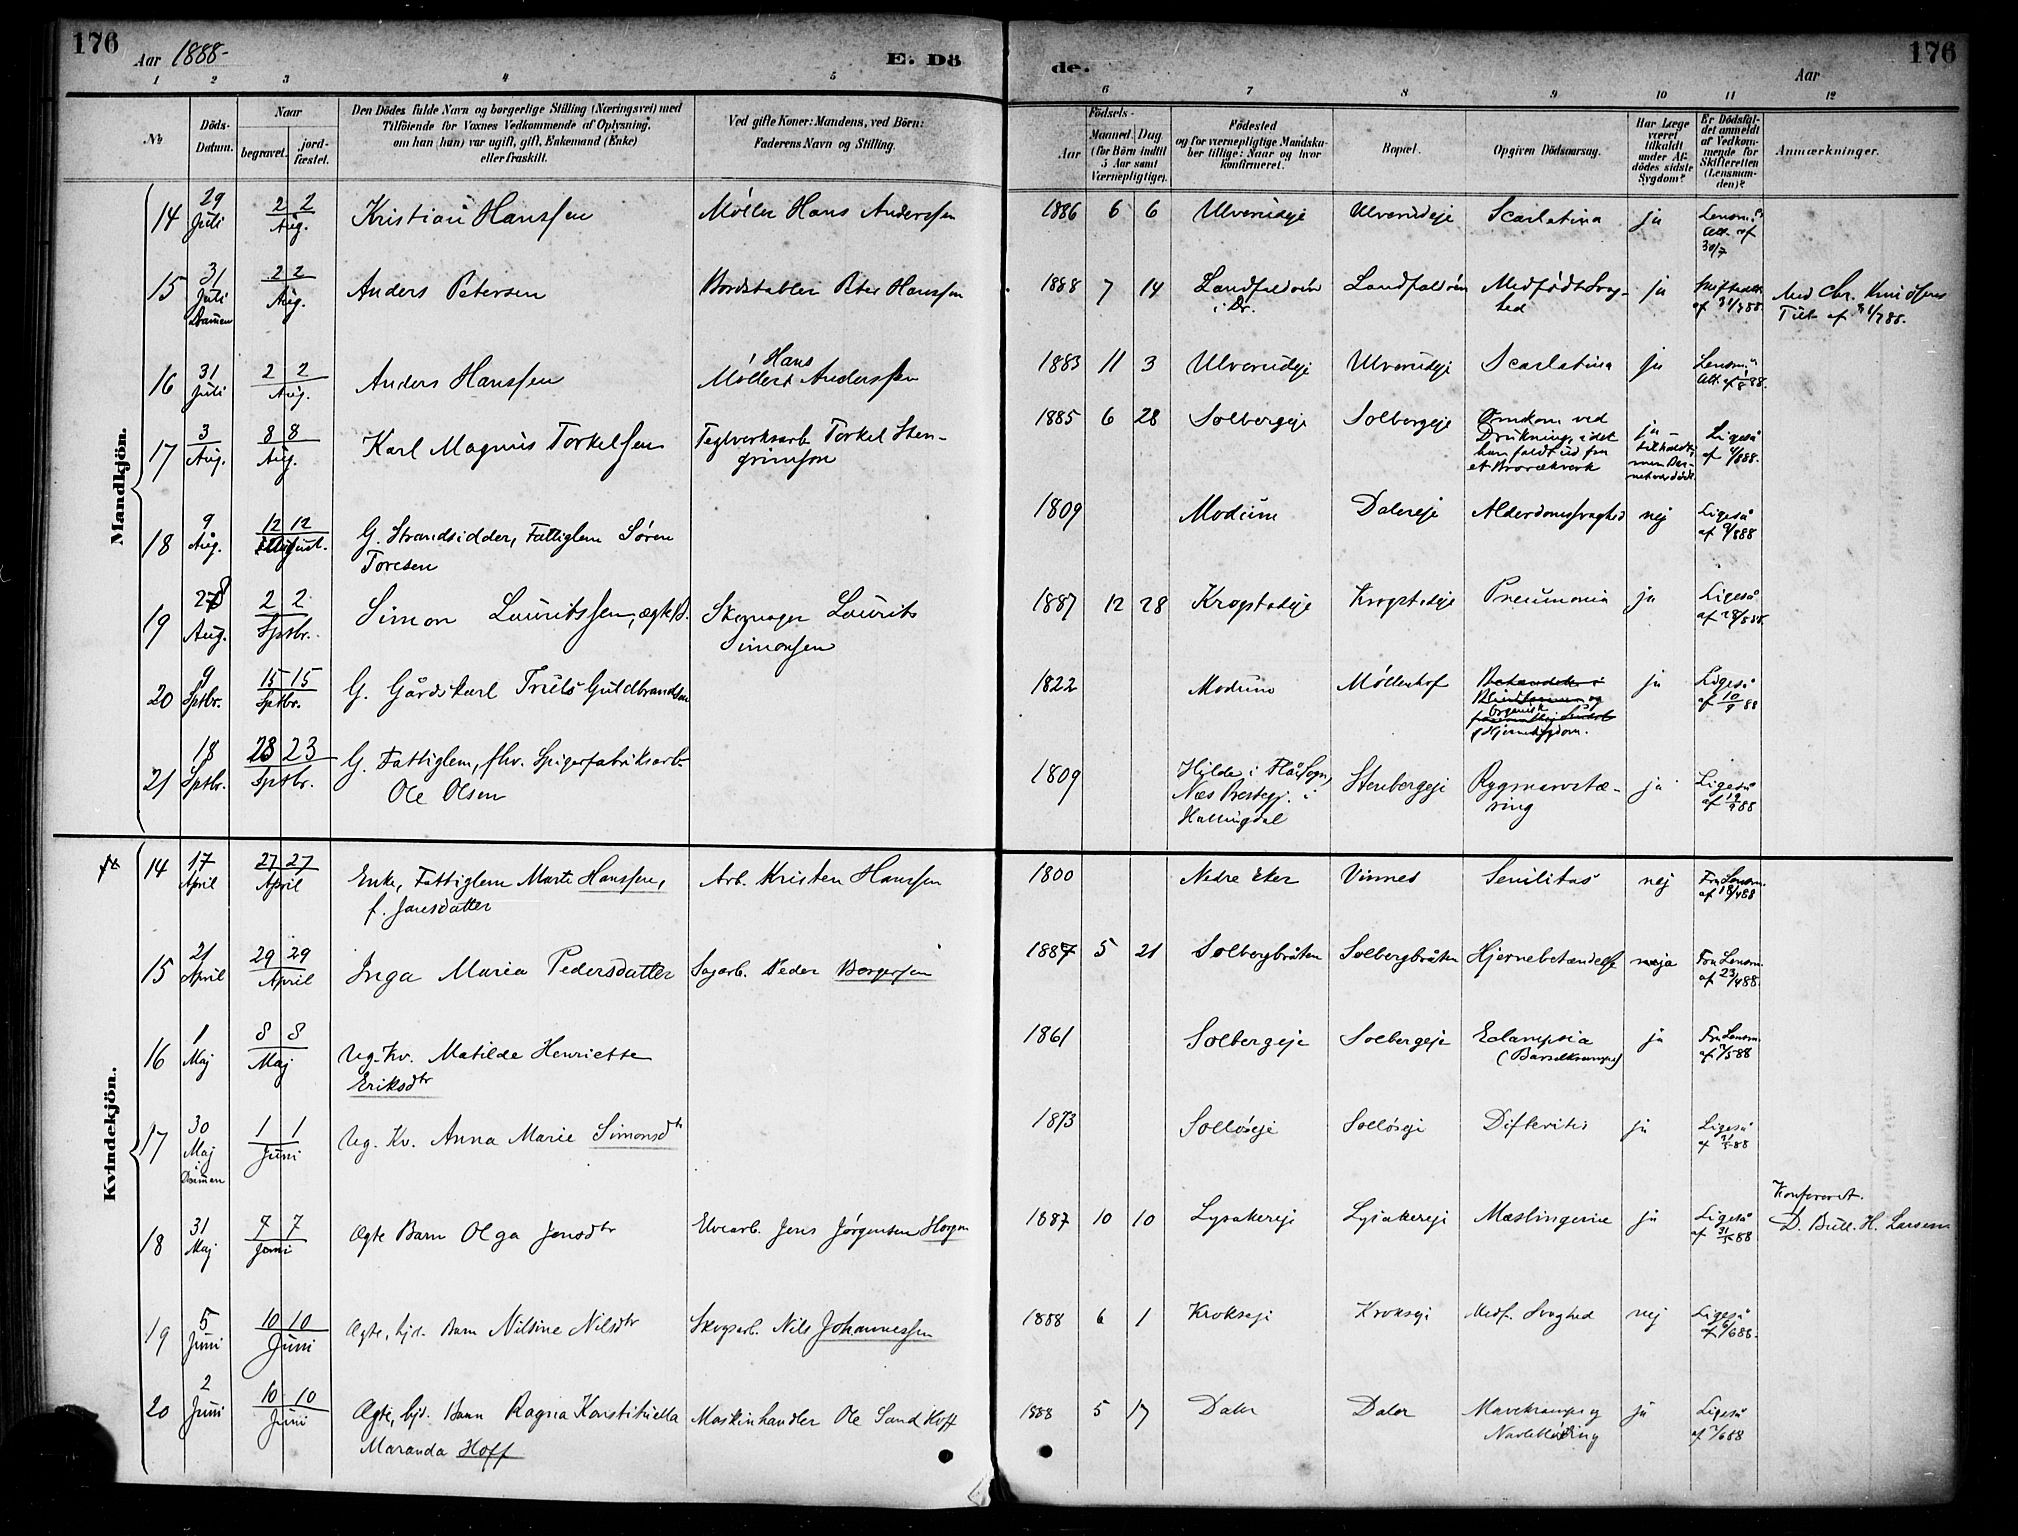 176
Aar 1888-
E. Dö
de.
Aar
176
1 2 3 4 5 6 7 8 9 10 11 12
No
Döds-
Datum.
Naar
begravet.
jord-
fæstet.
Den Dödes fulde Navn og borgerlige Stilling (Næringsvei) med
Tilföiende for Voxnes Vedkommende af Oplysning,
om han (hun) var ugift, gift, Enkemand (Enke)
eller fraskilt.
Ved gifte Koner: Mandens, ved Börn:
Faderens Navn og Stilling.
Födsels-
Aar
Maaned
Dag
(for Börn indtil
5 Aar samt
Værnepligtige).
Födested
og for værnepligtige Mandska-
ber tillige: Naar og hvor
konfirmeret.
Bopæl.
Opgiven Dödsaarsag.
Har Læge
været
tilkaldt
under Af-
dödes sidste
Sygdom?
Er Dödsfal-
det anmeldt
af Vedkom-
mende for
Skifteretten
(Lensman-
den)?
Anmærkninger.
Mandkjön.
14 29 Juli 2 2 Aug. Kristian Hanssen Møller Hans Anderssen 1886 6 6 Ulverudeje Ulverudeje Scarlatina ja Lensm.s
Att. af
30/7
15 31 Juli Dramen 2 2 Aug. Anders Petersen Bordstabler Peter Hanssen 1888 7 14 Landfaldøen
i Dr. Landfaldøen Medfødt Svag-
hed ja af 31/7 88. Med Chr. Knudsens
Till. af 31/7 88.
16 31 Juli 2 2 Aug. Anders Hanssen Møller Hans Anderssen 1883 11 3 Ulverudeje Ulverudeje Scarlatina ja Lensm.s
Att. af 1/8 88.
17 3 Aug. 8 8 Aug. Karl Magnus Torkelsen Teglverksarb. Torkel Sten-
grimson 1885 6 28 Solbergeje Solbergeje Omkom ved
Drukning, idet
han faldt ud fra
et Brorækverk ja -
tilkaldt,
men Bar-
net var dødt. Ligeså
af 4/8 88.
18 9 Aug. 12 12 August. G. Strandsidder, Fattiglem Søren
Toresen 1809 Modum Dalereje Alderdomssvaghed nej Ligeså
af 9/8 88
19 28 Aug. 2 2 Sptbr. Simon Lauritssen, ægtef. Skomager Laurits
Simonsen 1887 12 28 Krogstadeje Krogstadeje Pneumonia ja Ligeså
af 28/8 88.
20 9 Sptbr. 15 15 Sptbr. G. Gårdskarl Truls Guldbrandsen 1822 Modum Møllenhof Organisk
Hjernesygdom. ja Ligeså
af 10/9 88
21 18 Sptbr. 23 23 Sptbr. G. Fattiglem, fhv. Spigerfabriksarb.
Ole Olsen 1809 Hilde i Flå Sogn,
Næs Prestegj. i
Hallingdal Stenbergeje Rygmarvstæ-
ring ja Ligeså
af 19/9 88
Kvindekjön.
14 17 April 27 27 April Enke, Fattiglem Marte Hanssen,
f. Jansdatter Arb. Kristen Hanssen 1800 Nedre Eker Vinnes Senilitas nej Fra Lensm.
af 18/4 88
15 21 April 29 29 April Inga Maria Pedersdatter Sagarb. Peder Borgersen 1887 5 21 Solbergbråten Solbergbråten Hjernebetændelse ja Fra Lensm.
af 23/4 88.
16 1 Maj 8 8 Maj Ug. Kv. Matilde Henriette
Eriksdtr 1861 Solbergeje Solbergeje Eclampsia
(Barselkrampe) ja Fra Lensm.
af 2/5 88
17 30 Maj i Dramen 1 1 Juni Ug. Kv. Anna Marie Simonsdtr 1873 Solløseje Solløseje Difteritis ja Ligeså
af 31/5 88
18 31 Maj 7 7 Juni Ægte Barn Olga Jonsdtr Elvearb. Jens Jørgensen Horgen 1887 10 10 Lysakereje Lysakereje Mæslingerne ja Ligeså
af 31/5 88 Konfereret.
D. Bull. H. Larsen
19 5 Juni 10 10 Juni Ægte, hjd. Barn Nilsine Nilsdtr Skogarb. Nils Johannessen 1888 6 1 Krokseje Krokseje Medf. Svaghed nej Ligeså
af 6/6 88.
20 2 Juni 10 10 Juni Ægte, hjd. Barn Ragna Konstituella
Maranda Hoff Maskinhandler Ole Sand Hoff 1888 5 17 Daler Daler Mavekrampe og
Navleblødning ja Ligeså
af 7/6 88